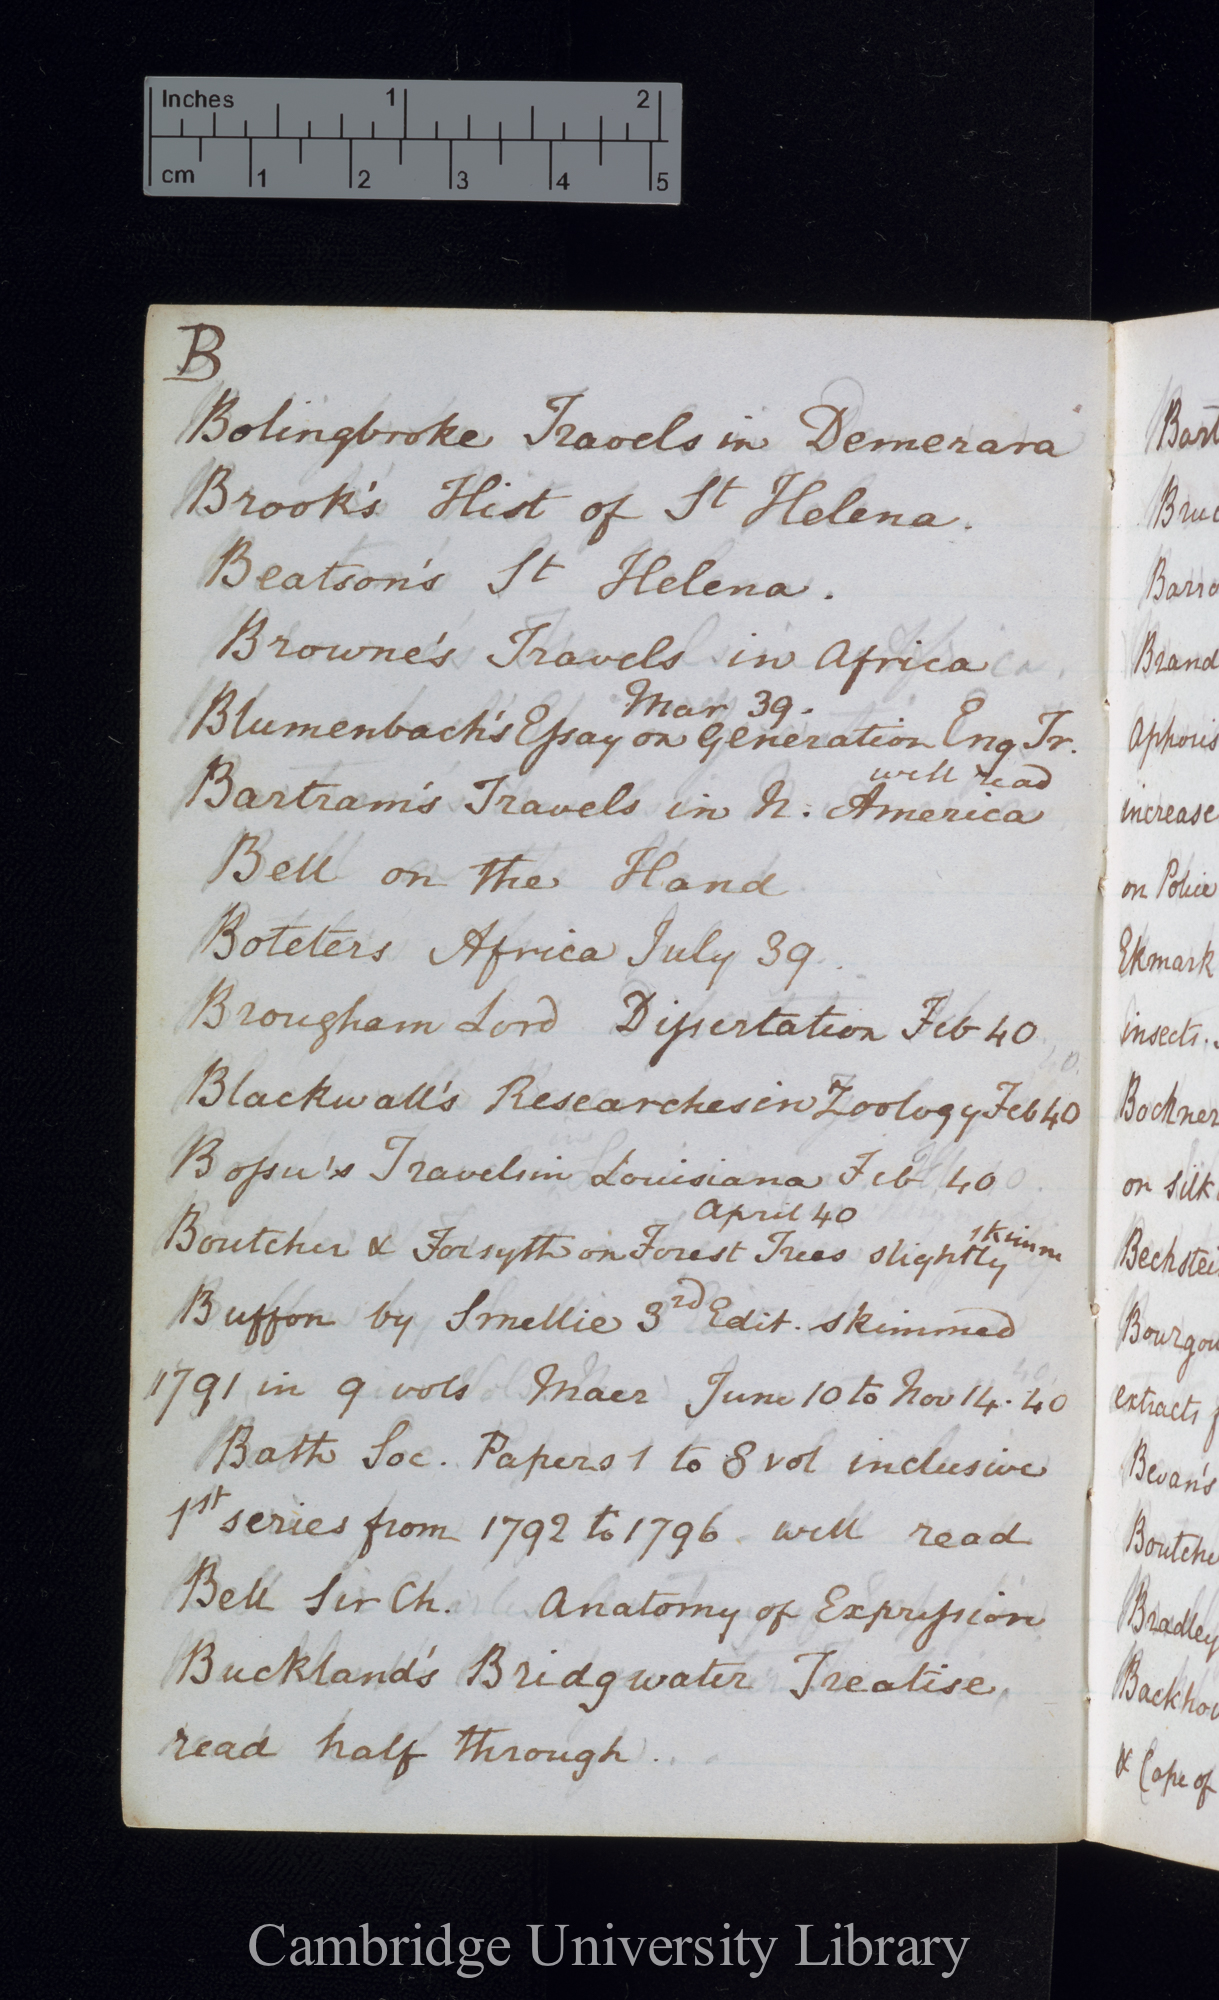 Inches 1 2
cm 1 2 3 4 5
B
Bolingbroke Travels in Demerara
Brook's Hist of St Helena.
Beatson's St Helena.
Browne's Travels in Africa
Mar 39.
Blumenbach's Essay on Generation Eng Tr.
well read
Bartram's Travels in N. America
Bell on the Hand
Boteters Africa July 39.
Brougham Lord Dissertation Feb 40
Blackwall's Researches in Zoology Feb 40
Bossu's Travels in Louisiana Feb 40
April 40
skimm
Boutcher & Forsyth on Forest Trees slightly
Buffon by Smellie 3rd Edit. skimmed
1791 in 9 vols Maer June 10 to Nov 14. 40
Bath Soc. Papers 1 to 8 vol inclusive
1st series from 1792 to 1796 well read
Bell Sir Ch. Anatomy of Expression
Buckland's Bridgwater Treatise
read half through.
Bart
Bruc
Barro
Brand
Aphoris
increase
on Police
Ekmark
insects.
Bochner
or silk
Bechstei
Bourgou
extracts f
Bevan's
Boutche
Bradley
Backhou
& Cape of
Cambridge University Library